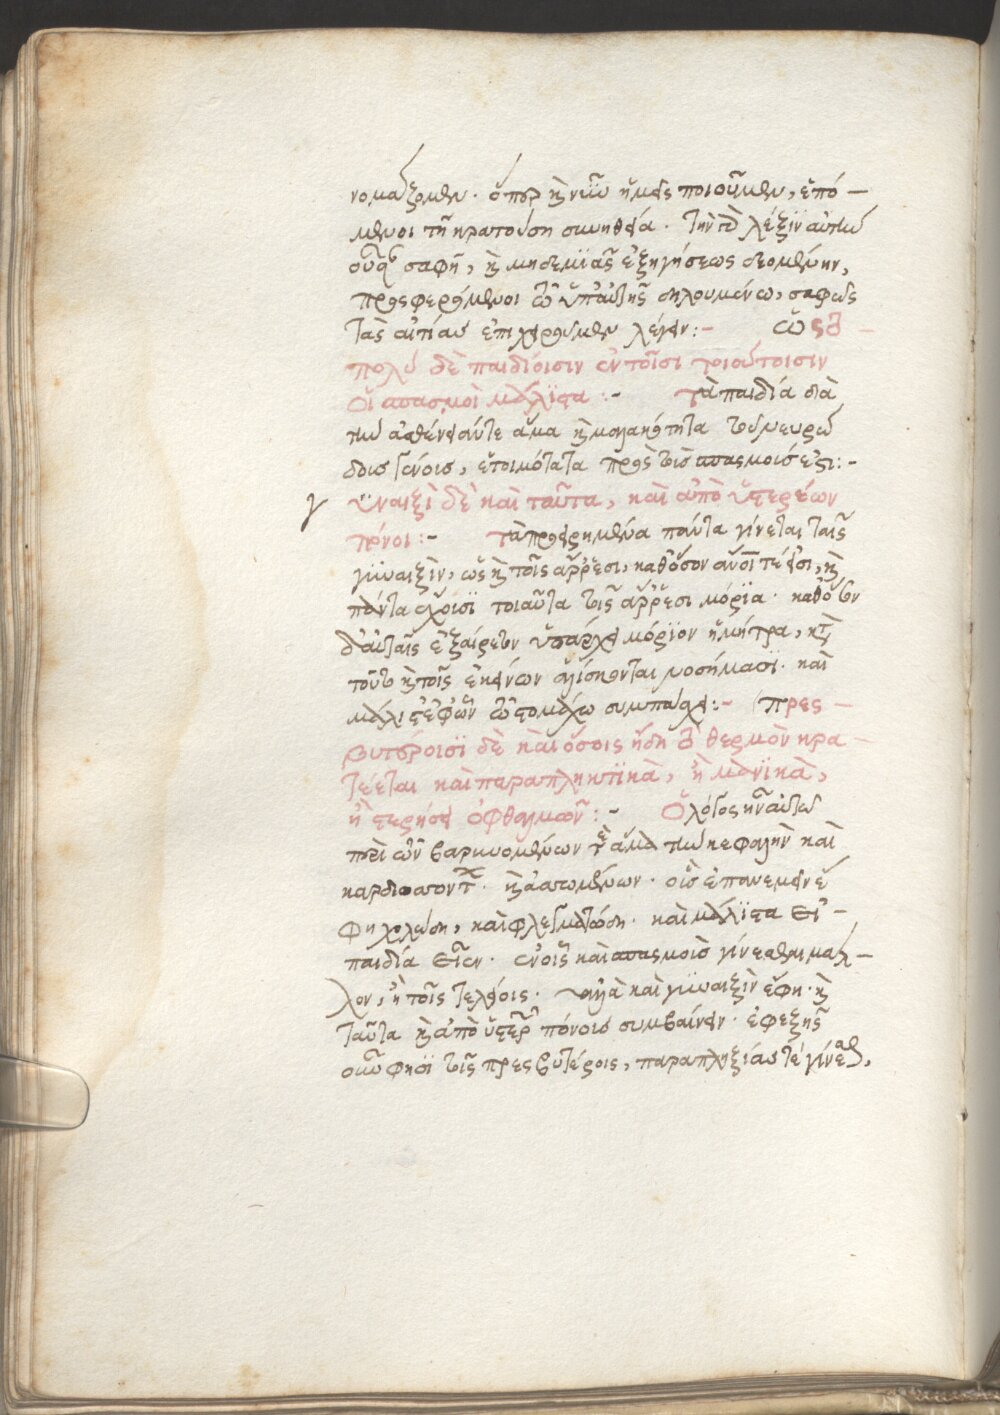 νομάζομεν. ὅπερ καὶ νῦν ἡμεῖς ποιοῦμεν, ἑπό-
μενοι τῇ κρατούσῃ συνηθείᾳ. τὴν δὲ λέξιν αὐτὴν
οὖσαν σαφῆ, καὶ μηδεμιᾶς ἐξηγήσεως δεομένην,
προσφερόμενοι τῶ ὑπ' αὐτῆς δηλουμένω, σαφῶς
τὰς αἰτίας ἐπιχειροῦμεν λέγειν:- ὡς δ
πολὺ δὲ παιδίοισιν ἐν τοῖσι τοιούτοισιν
Οἱ σπασμοὶ μάλιστα:- τὰ παιδία διὰ
τὴν ἀσθένειάν τε ἅμα καὶ μαλακότητα τοῦ νευρώ
δους γένους, ἑτοιμότατα πρὸς τοὺς σπασμούς ἐστι:-
γ ϋναιξὶ δὲ καὶ ταῦτα, καὶ ἀπὸ ὑστερέων
πόνοι:- τὰ προειρημένα πάντα γίνεται ταῖς
γυναιξὶν, ὡς καὶ τοῖς ἄρρεσι, καθόσον ἄνοι τέ εἰσι, καὶ
πάντα ἔχουσι τοιαῦτα τοῖς ἄρρεσι μόρια. καθὸ τοίνυν
δ' αὐταῖς ἐξαίρετον ὑπάρχει μόριον ἡ μήτρα, κατὰ
τοῦτο καὶ τοῖς ἐκείνων ἁλίσκονται νοσήμασι. καὶ
μάλιστ' ἐφ' ὧν τῶ στομάχω συμπάσχει:- πρεσ-
βυτέροισι δὲ καὶ ὅσοις ἤδη τὸ θερμὸν κρα-
τέεται καὶ παραπληκτικὰ, ἢ μανικὰ,
ἢ στερήσει ὀφθαλμῶν:- Ὁ λόγος ἦν αὐτῶ
περὶ τῶν βαρυνομένων τε ἅμα τὴν κεφαλὴν καὶ
καρδιωσσόντων. καὶ ἀσωμένων. οἷς ἐπανεμεῖν ἔ
φη χολώδη, καὶ φλεγματώδη. καὶ μάλιστα εἰ-
παιδία εἶεν. ἐν οἷς καὶ σπασμοὺς γίνεσθαι μᾶλ-
λον, ἢ τοῖς τελείοις. ἀλλὰ καὶ γυναιξὶν ἔφη. καὶ
ταῦτα καὶ ἀπὸ ὑστερῶν πόνους συμβαίνειν. ἐφεξῆς
οὖν φησὶ τοῖς πρεσβυτέροις, παραπληξίας τέ γίνεσθαι,